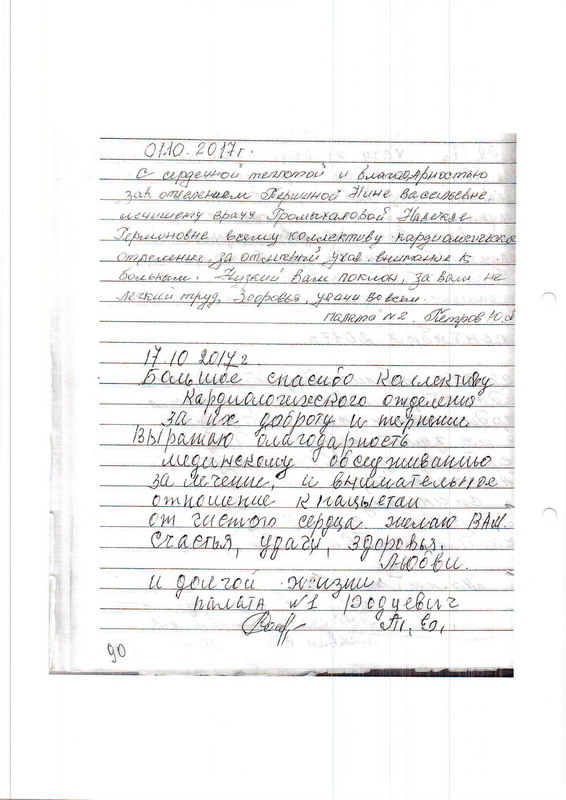 01.10.2017г.
С сердечной теплотой и благодарностью
зав. отделением Першиной Нине Васильевне,
лечащему врачу Промыхаловой Надежде
Гермоновне, всему коллективу кардиологическо
отделения, за отличный уход, внимание к
больным. Низкий Вам поклон, за вам не
легкий труд, Здоровья, удачи во всем.
палата №2. Петров Ю.А
17.10 2017г.
Большое спасибо Коллективу
Кардиологихского отделения
за их доброту и терпение
Выражаю благодарность
медицнскому обслуживанию
за лечение, и внимательное
отношение к пацыетам
от чистого сердца желаю ВАМ.
Счастья, удачи, здоровья.
Любви.
и долгой жизни
палата №1
90